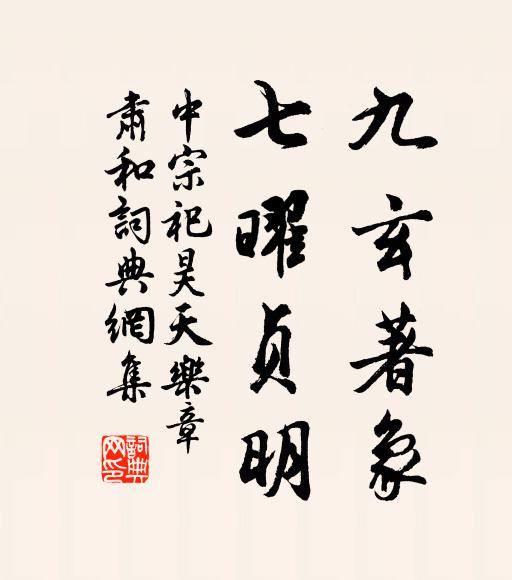 九玄著象
七曜貞明
中宗祀昊天樂章
肅和詞典網集
詞典网印